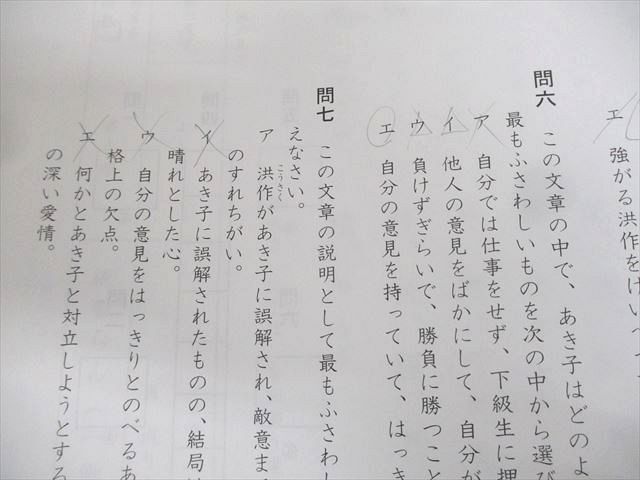 エ 強がる洪作をけい
問六 この文章の中で、あき子はどのよ
最もふさわしいものを次の中から選び
ア 自分では仕事をせず、下級生に押
イ 他人の意見をばかにして、自分が
ウ 負けずぎらいで、勝負に勝つこと
エ 自分の意見を持っていて、はっき
問七 この文章の説明として最もふさわし
えなさい。
ア 洪作があき子に誤解され、敵意ま
こうさく
のすれちがい。
イ あき子に誤解されたものの、結局
晴れとした心。
ウ 自分の意見をはっきりとのべるあ
格上の欠点。
エ 何かとあき子と対立しようとする
の深い愛情。